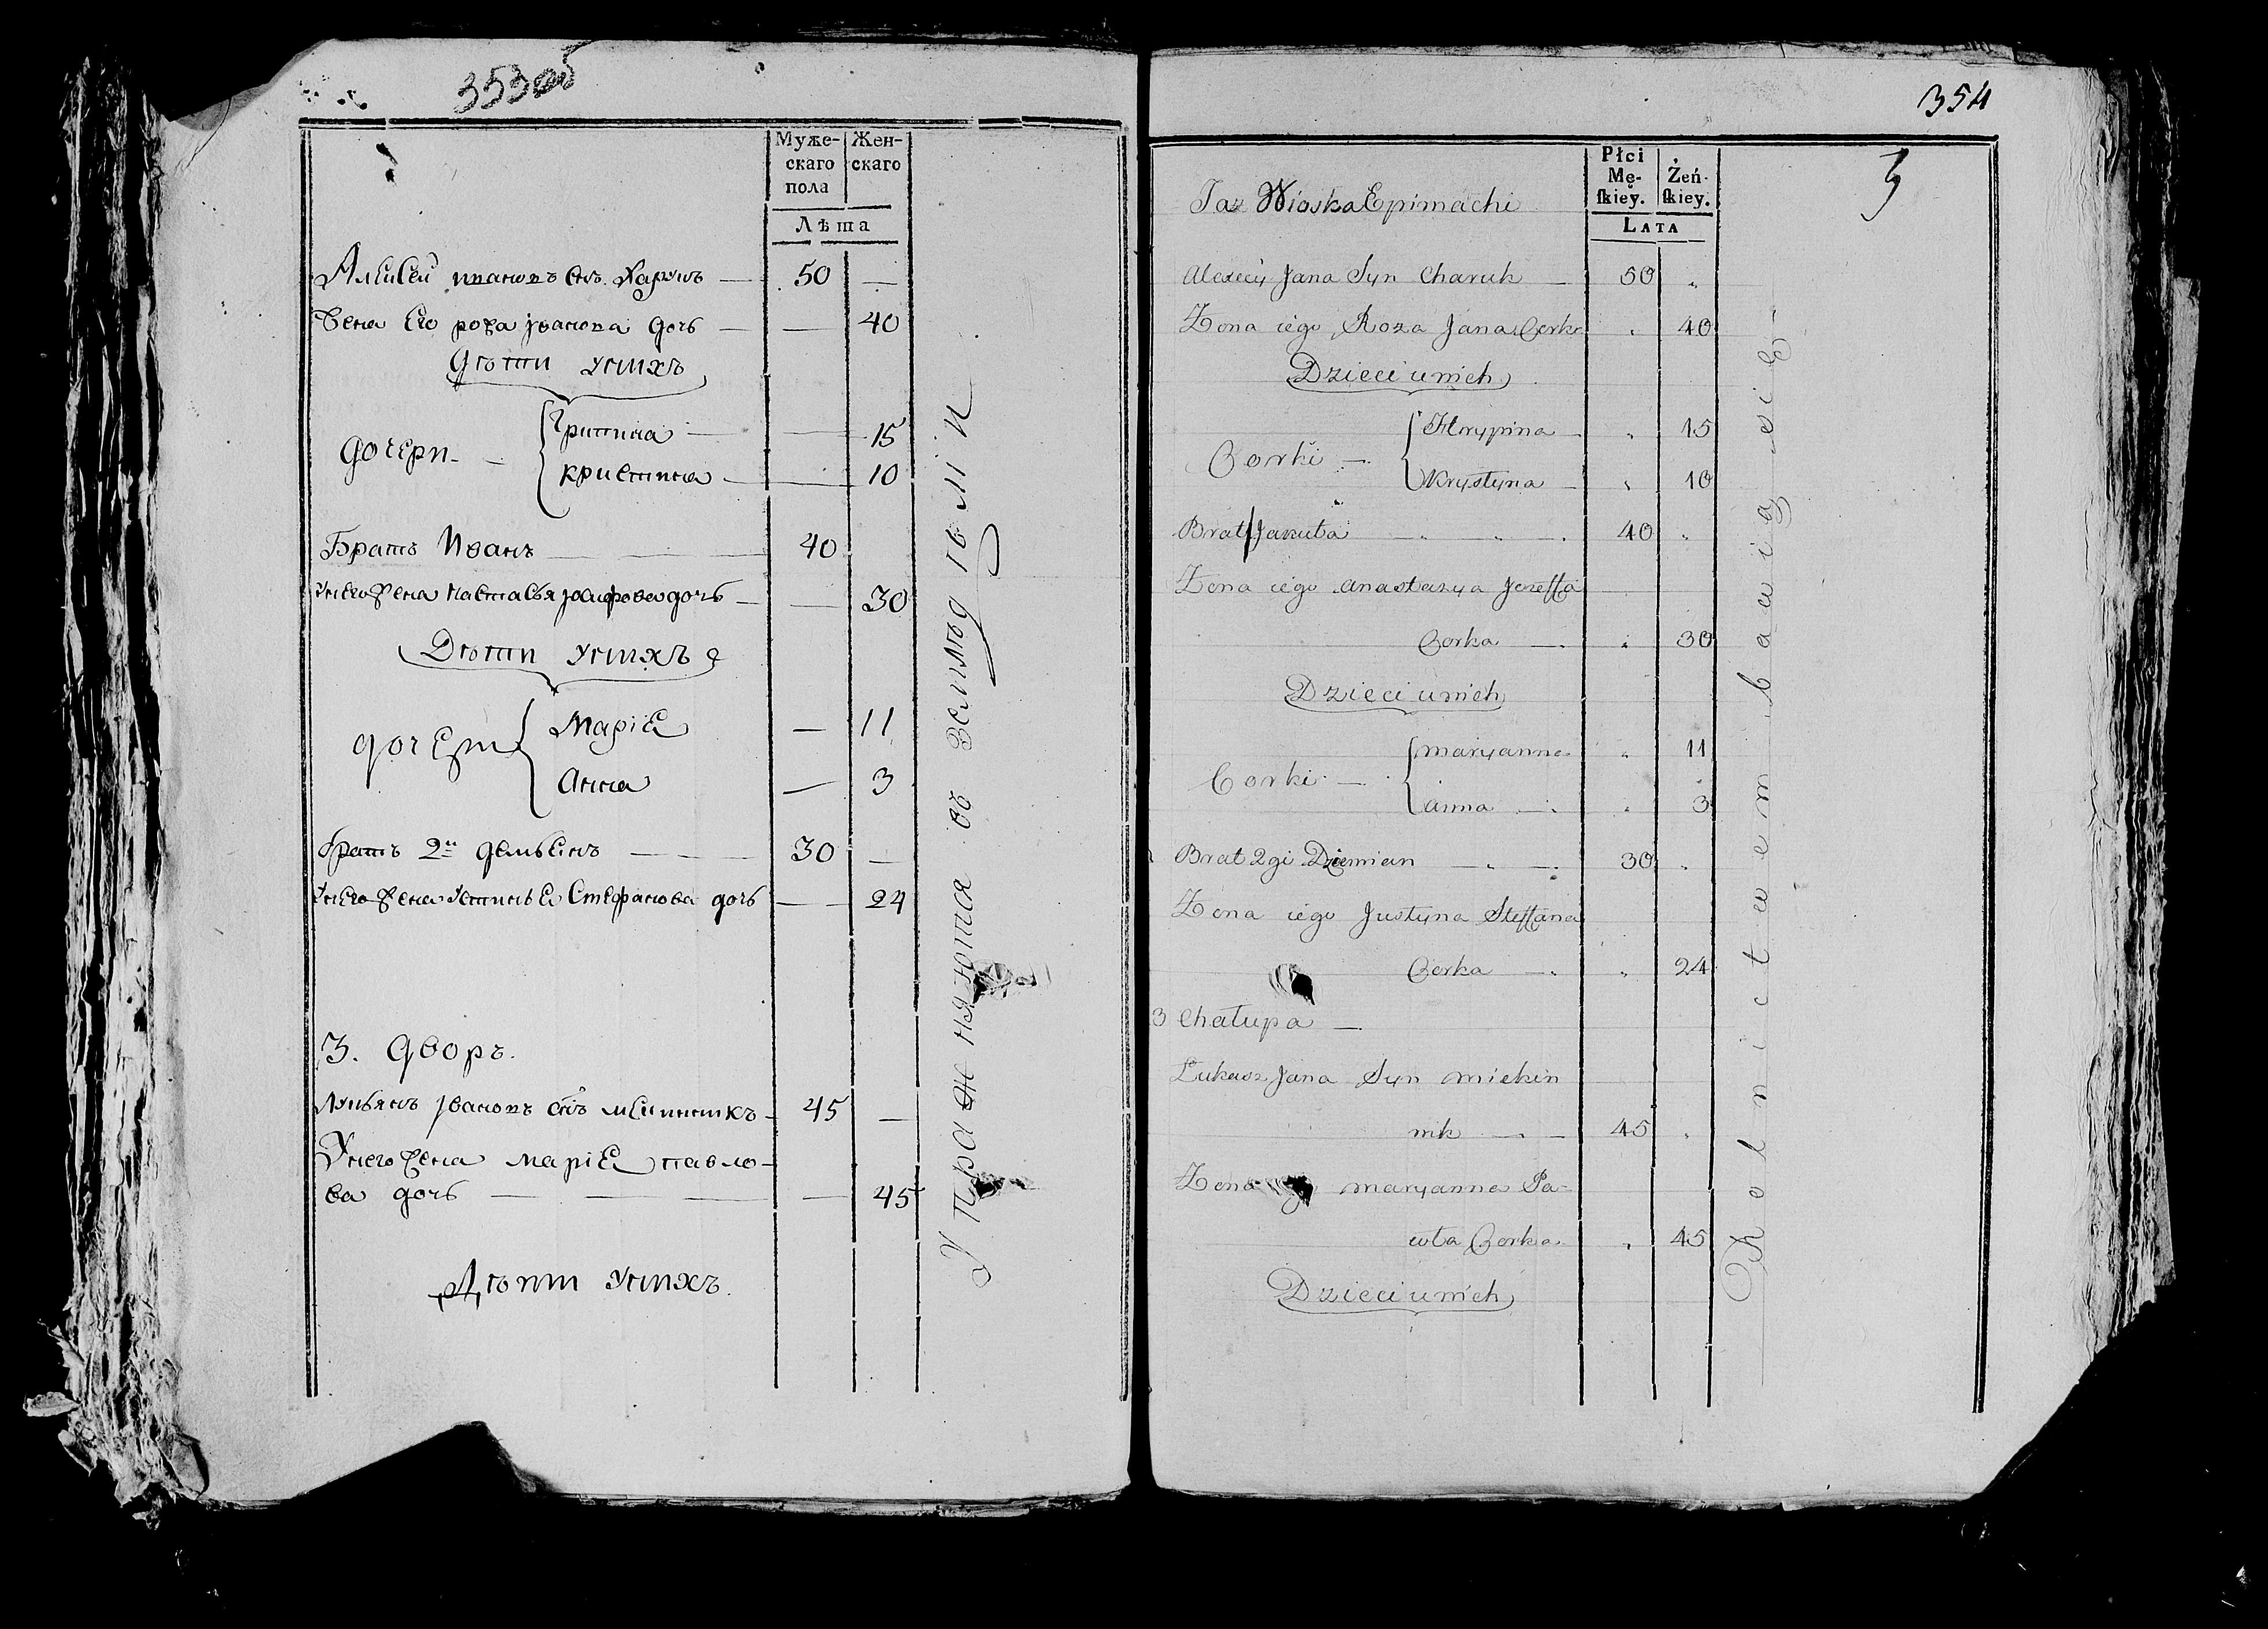 353 об
Муже-
скаго
пола
Жен-
скаго
Лѣта
Алеѯей Ивановъ снъ Харукъ — 50 —
Жена Его роза Јванова дочь — — 40
Дѣти унихъ
дочери —
Грипина — — 15
кристина — — 10
Братъ Иванъ — 40
унего жена Настасья Јосифова дочь — — 30
Дѣти унихъ
дочери
Маріѣ — 11
Анна — 3
братъ 2й демьянъ — 30 —
унего жена Устинья Стефанова дочь — — 24
3. дворъ.
Лукьянъ Јвановъ снъ — 45 —
Унего жена маріѣ павло-
ва дочь — — 45
Дѣти унихъ.
Упражняются объ земльдѣліи
354
Płci
Mę-
skiey.
Żeń-
skiey.
LATA
3
Taz Wioska Epimachi
Alexiey Jana Syn Charuk — 50 "
Zona iego Roza Jana Corka " 40
Dzieci unich
Corki —
Hrypina " 15
Krystyna — " 10
Brat Januta — 40 "
Zona iego Anastazya Jozeffa
Corka — " 30
Dzieci unich
Corki —
maryanna " 11
anna — " 3
Brat 2gi Dziemian — 30 "
Zona iego Justyna Steffana
Corka — " 24
3 Chałupa —
Łukasz Jana Syn miekin
nik — 45 "
Zona maryanna Pa-
wła Corka " 45
Dzieci unich
Rolnictwem bawią się